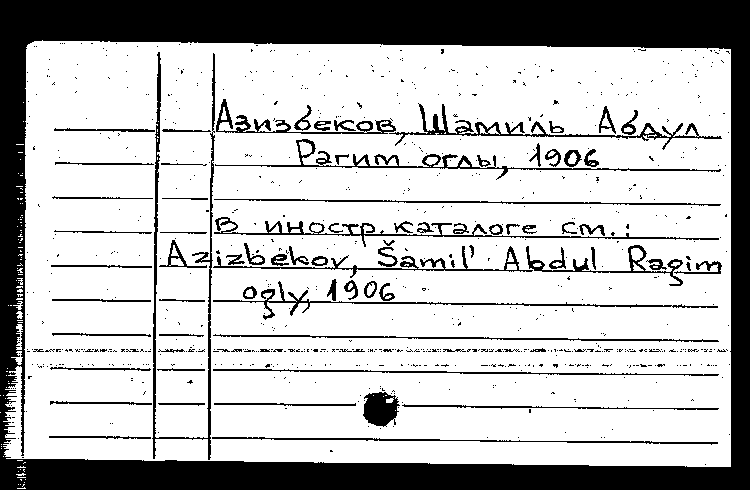 Азизбеков, Шамиль Абдул
Рагим оглы, 1906
В иностр. каталоге см.:
Azizbekov, Šamil' Abdul Ragim
ogly, 1906